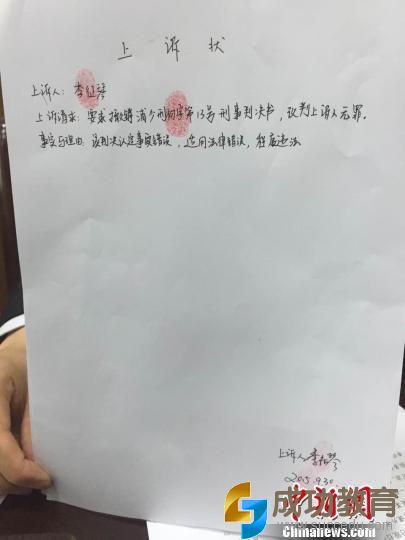 上诉状
上诉人：李征琴
上诉请求：要求撤销浦少刑初字第13号刑事判决书，改判上诉人无罪。
事实与理由：该判决认定事实错误，适用法律错误，程序违法
上诉人 李征琴
2015.9.30
中新网
成功教育
www.succedu.com
chinanews.com